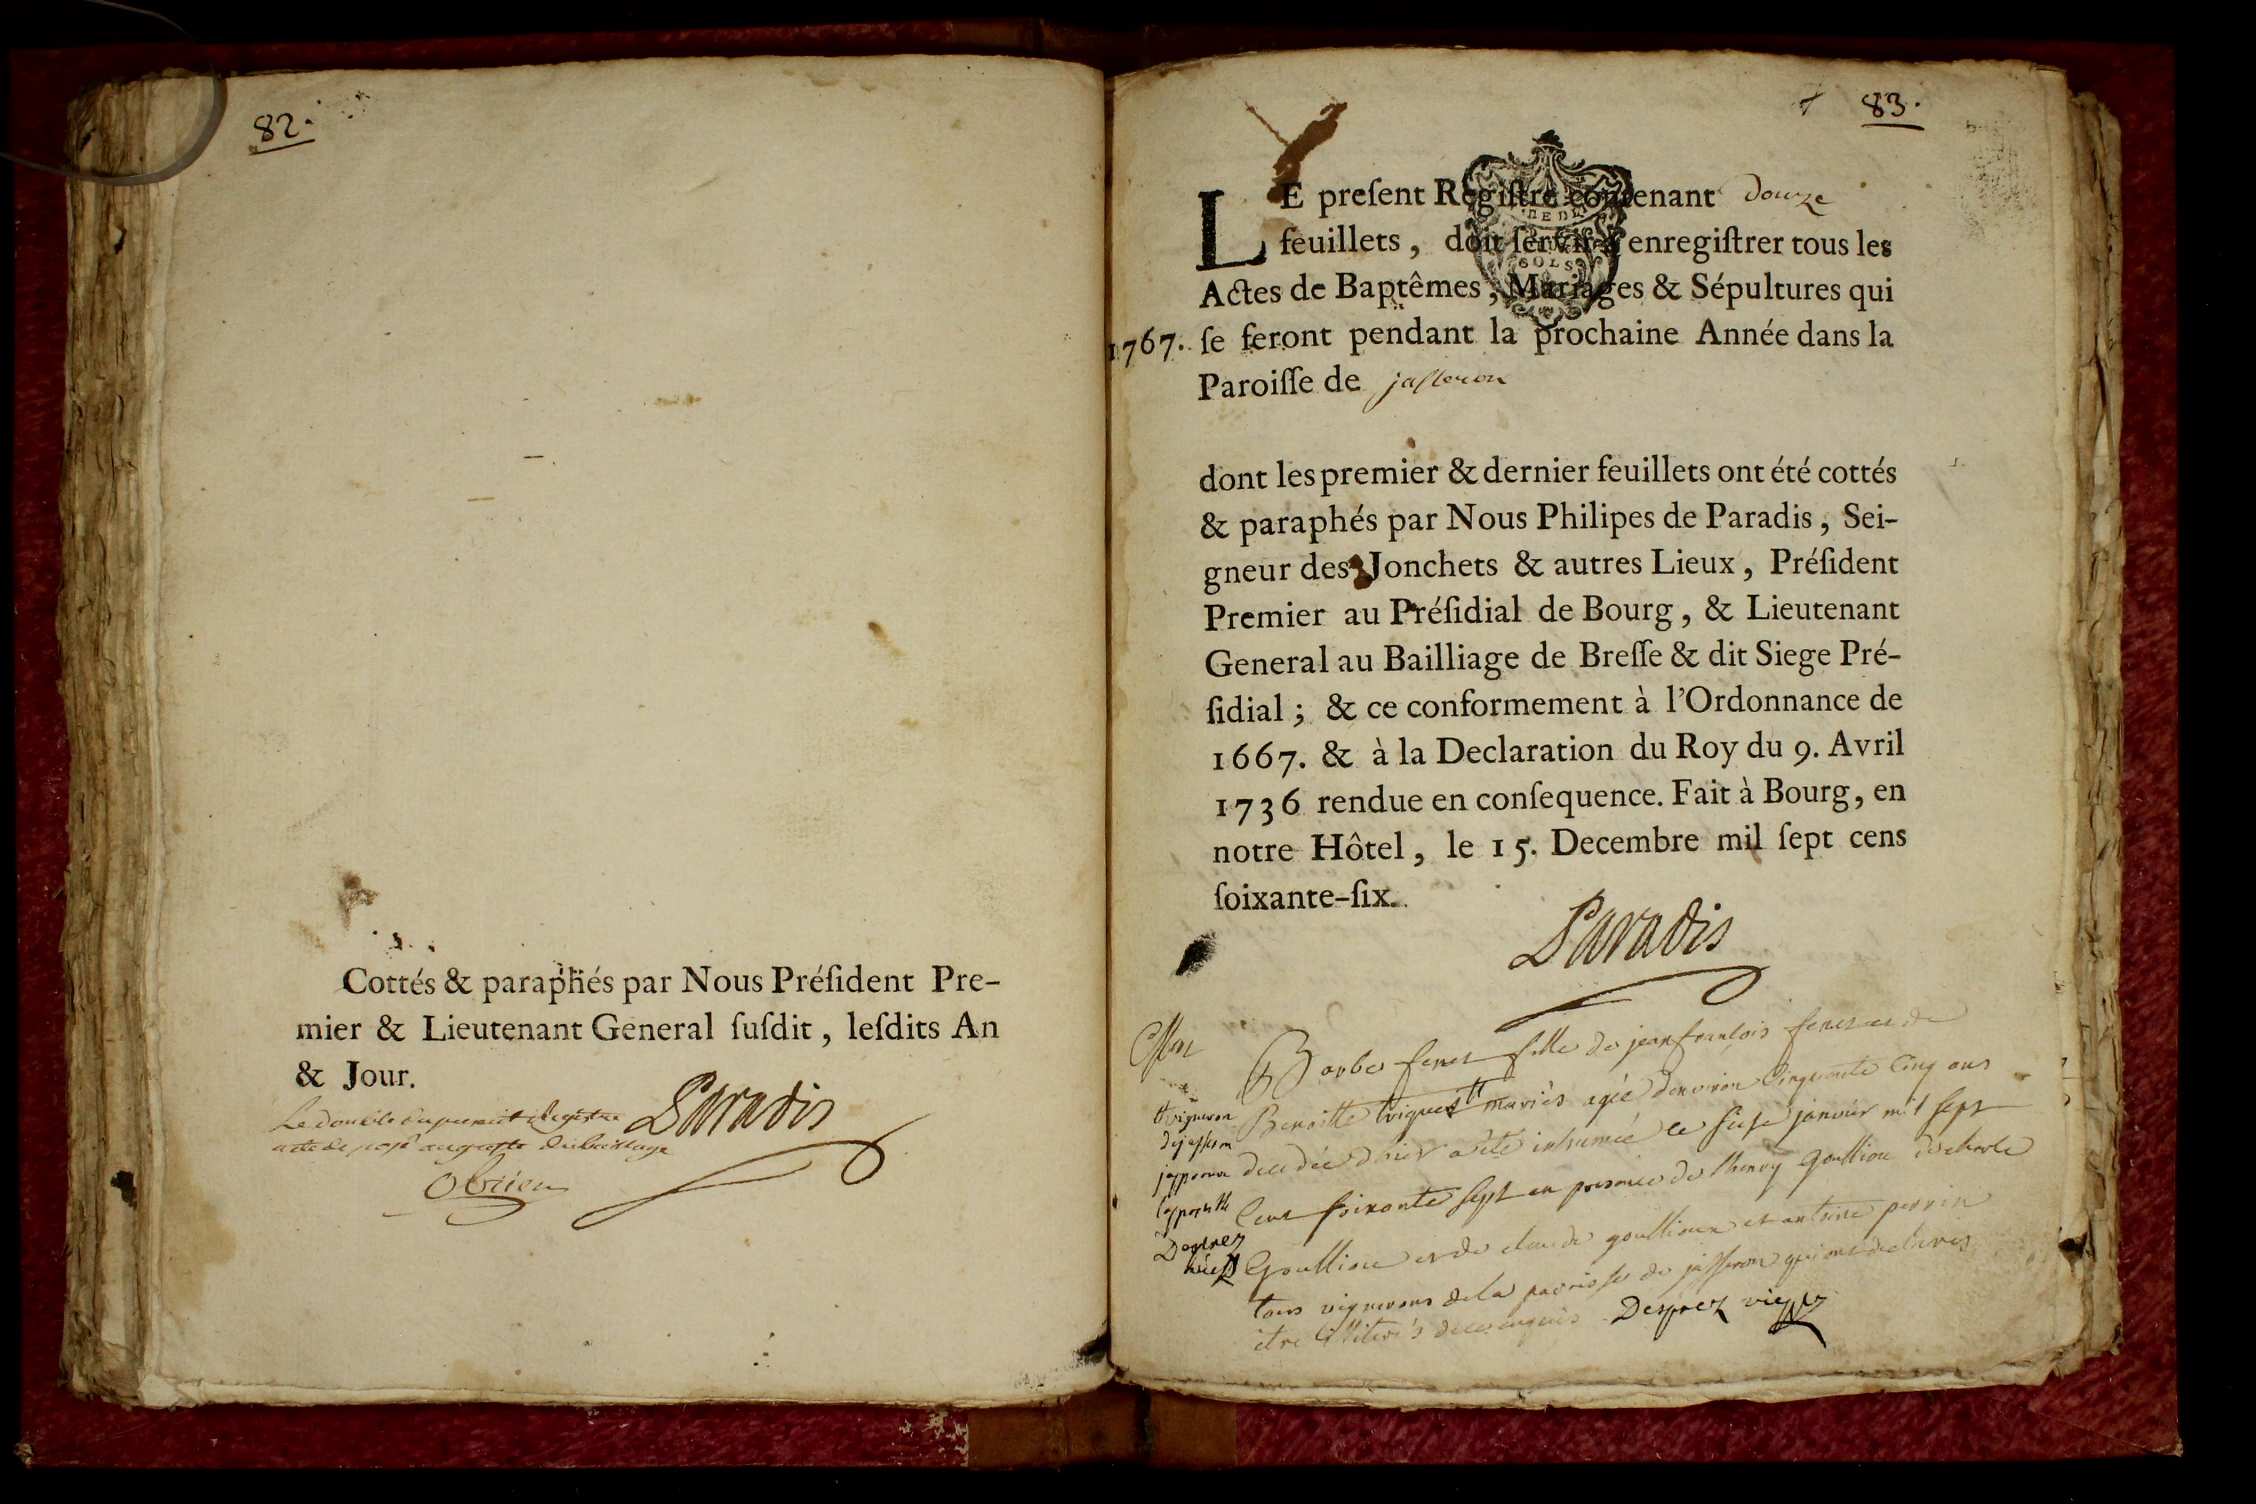 82.
Cottés & paraphés par Nous Préſident Pre-
mier & Lieutenant General ſuſdit, leſdits An
& Jour.
Paradis
Le double du present Registre
a été deposé au greffe du Bailliage
83.
LE preſent Regiſtre contenant douze
feuillets, doit ſervir à enregiſtrer tous les
Actes de Baptêmes, Mariages & Sépultures qui
1767. ſe feront pendant la prochaine Année dans la
Paroiſſe de jasseron
dont les premier & dernier feuillets ont été cottés
& paraphés par Nous Philipes de Paradis, Sei-
gneur des Jonchets & autres Lieux, Préſident
Premier au Préſidial de Bourg, & Lieutenant
General au Bailliage de Breſſe & dit Siege Pré-
ſidial; & ce conformement à l'Ordonnance de
1667. & à la Declaration du Roy du 9. Avril
1736 rendue en conſequence. Fait à Bourg, en
notre Hôtel, le 15. Decembre mil ſept cens
ſoixante-ſix.
Paradis
vigneron
de jasseron
Desprez
Barbe feret fille de jean françois feret et de
Benoitte mariés agée denviron Cinquante Cinq ans
decedée d'hier a été inhumée ce seise janvier mil sept
Cent soixante sept en presence de
et de claude goullioux et antoine perrin
tous vignerons de la paroisse de jasseron qui ont
être illiterés de ce enquis. Desprez